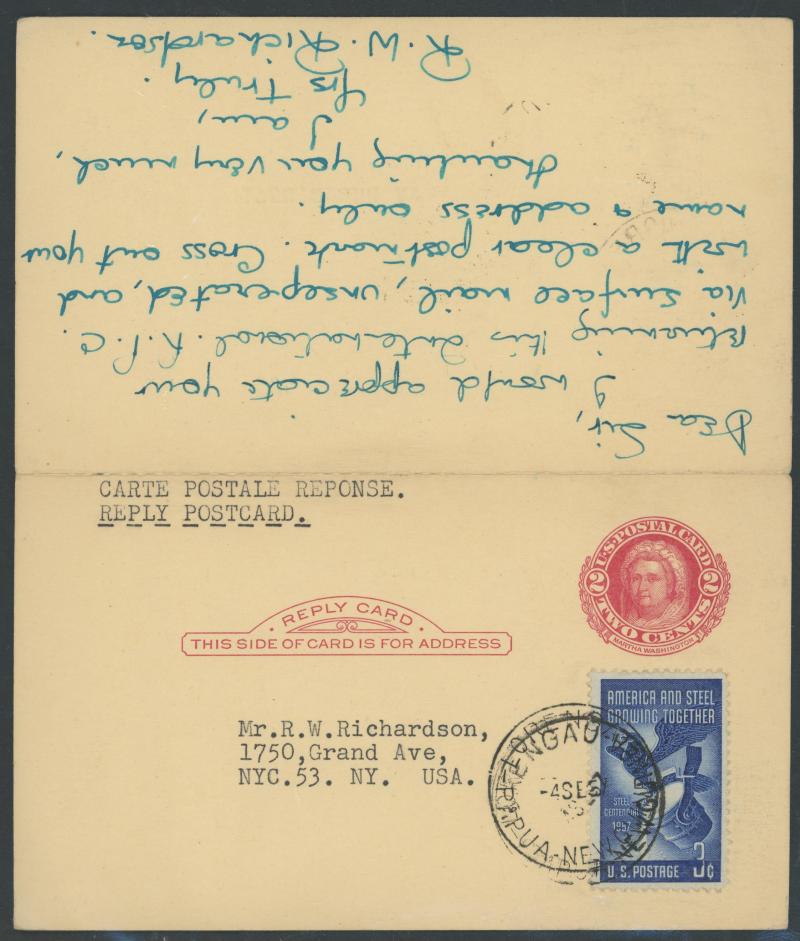 Dear Sir,
I would appreciate your
returning this International R.P.C.
via surface mail, unseperated, and
with a clear postmark. Cross out your
name & address only.
Thanking you very much,
I am,
Yrs Truly.
R.W. Richardson.
CARTE POSTALE REPONSE.
REPLY POSTCARD.
U.S. POSTAL CARD
2 2
TWO CENTS
MARTHA WASHINGTON
REPLY CARD
THIS SIDE OF CARD IS FOR ADDRESS
AMERICA AND STEEL
GROWING TOGETHER
STEEL
CENTENNIAL
1957
3¢
U.S. POSTAGE
Mr.R.W.Richardson,
1750,Grand Ave,
NYC.53. NY. USA.
LORENGAU
-4SE57
PAPUA-NEW GUINEA